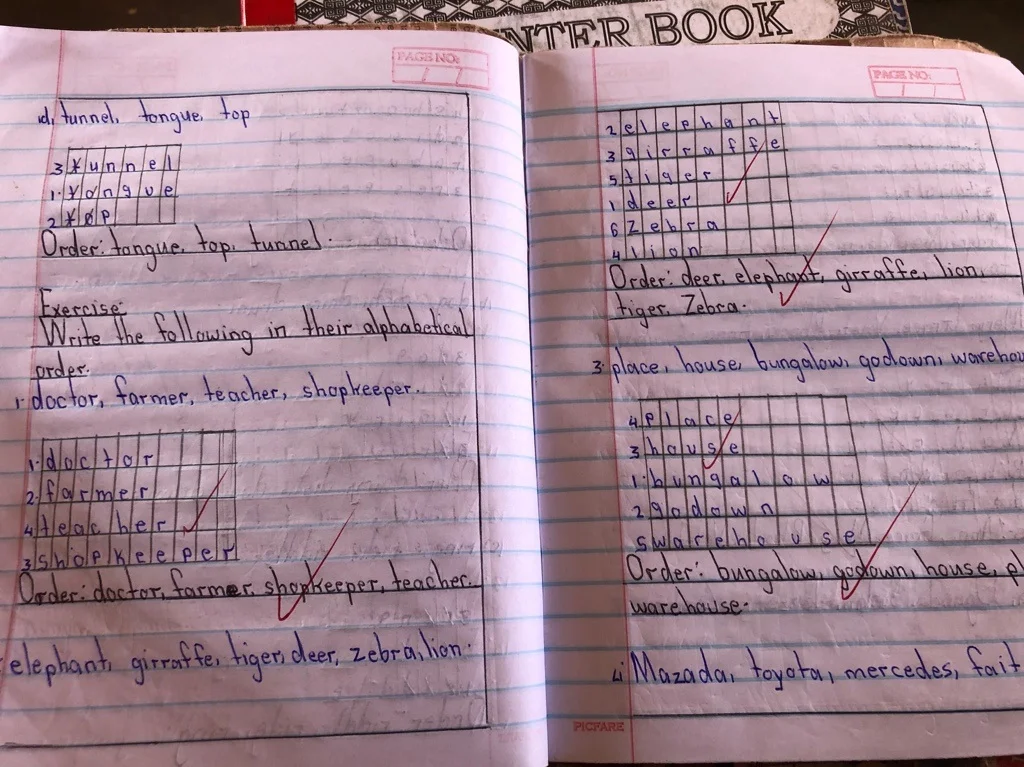 NTER BOOK
PAGE NO:
d, tunnel, tongue, top
3 tunnel
1. tongue
2 top
Order: tongue, top, tunnel.
Exercise:
Write the following in their alphabetical
order.
1. doctor, farmer, teacher, shopkeeper.
1. doctor
2. farmer
4 teacher
3 shopkeeper
Order: doctor, farmer, shopkeeper, teacher.
elephant, girraffe, tiger, deer, zebra, lion.
PAGE NO:
2 elephant
3 girraffe
5 tiger
1 deer
6 Zebra
4 lion
Order: deer, elephant, girraffe, lion,
tiger, Zebra.
3. place, house, bungalow, godown, warehou
4. place
3 house
1. bungalow
2 godown
5 warehouse
Order: bungalow, godown, house, pl
warehouse.
4. Mazada, toyota, mercedes, fait
PICFARE